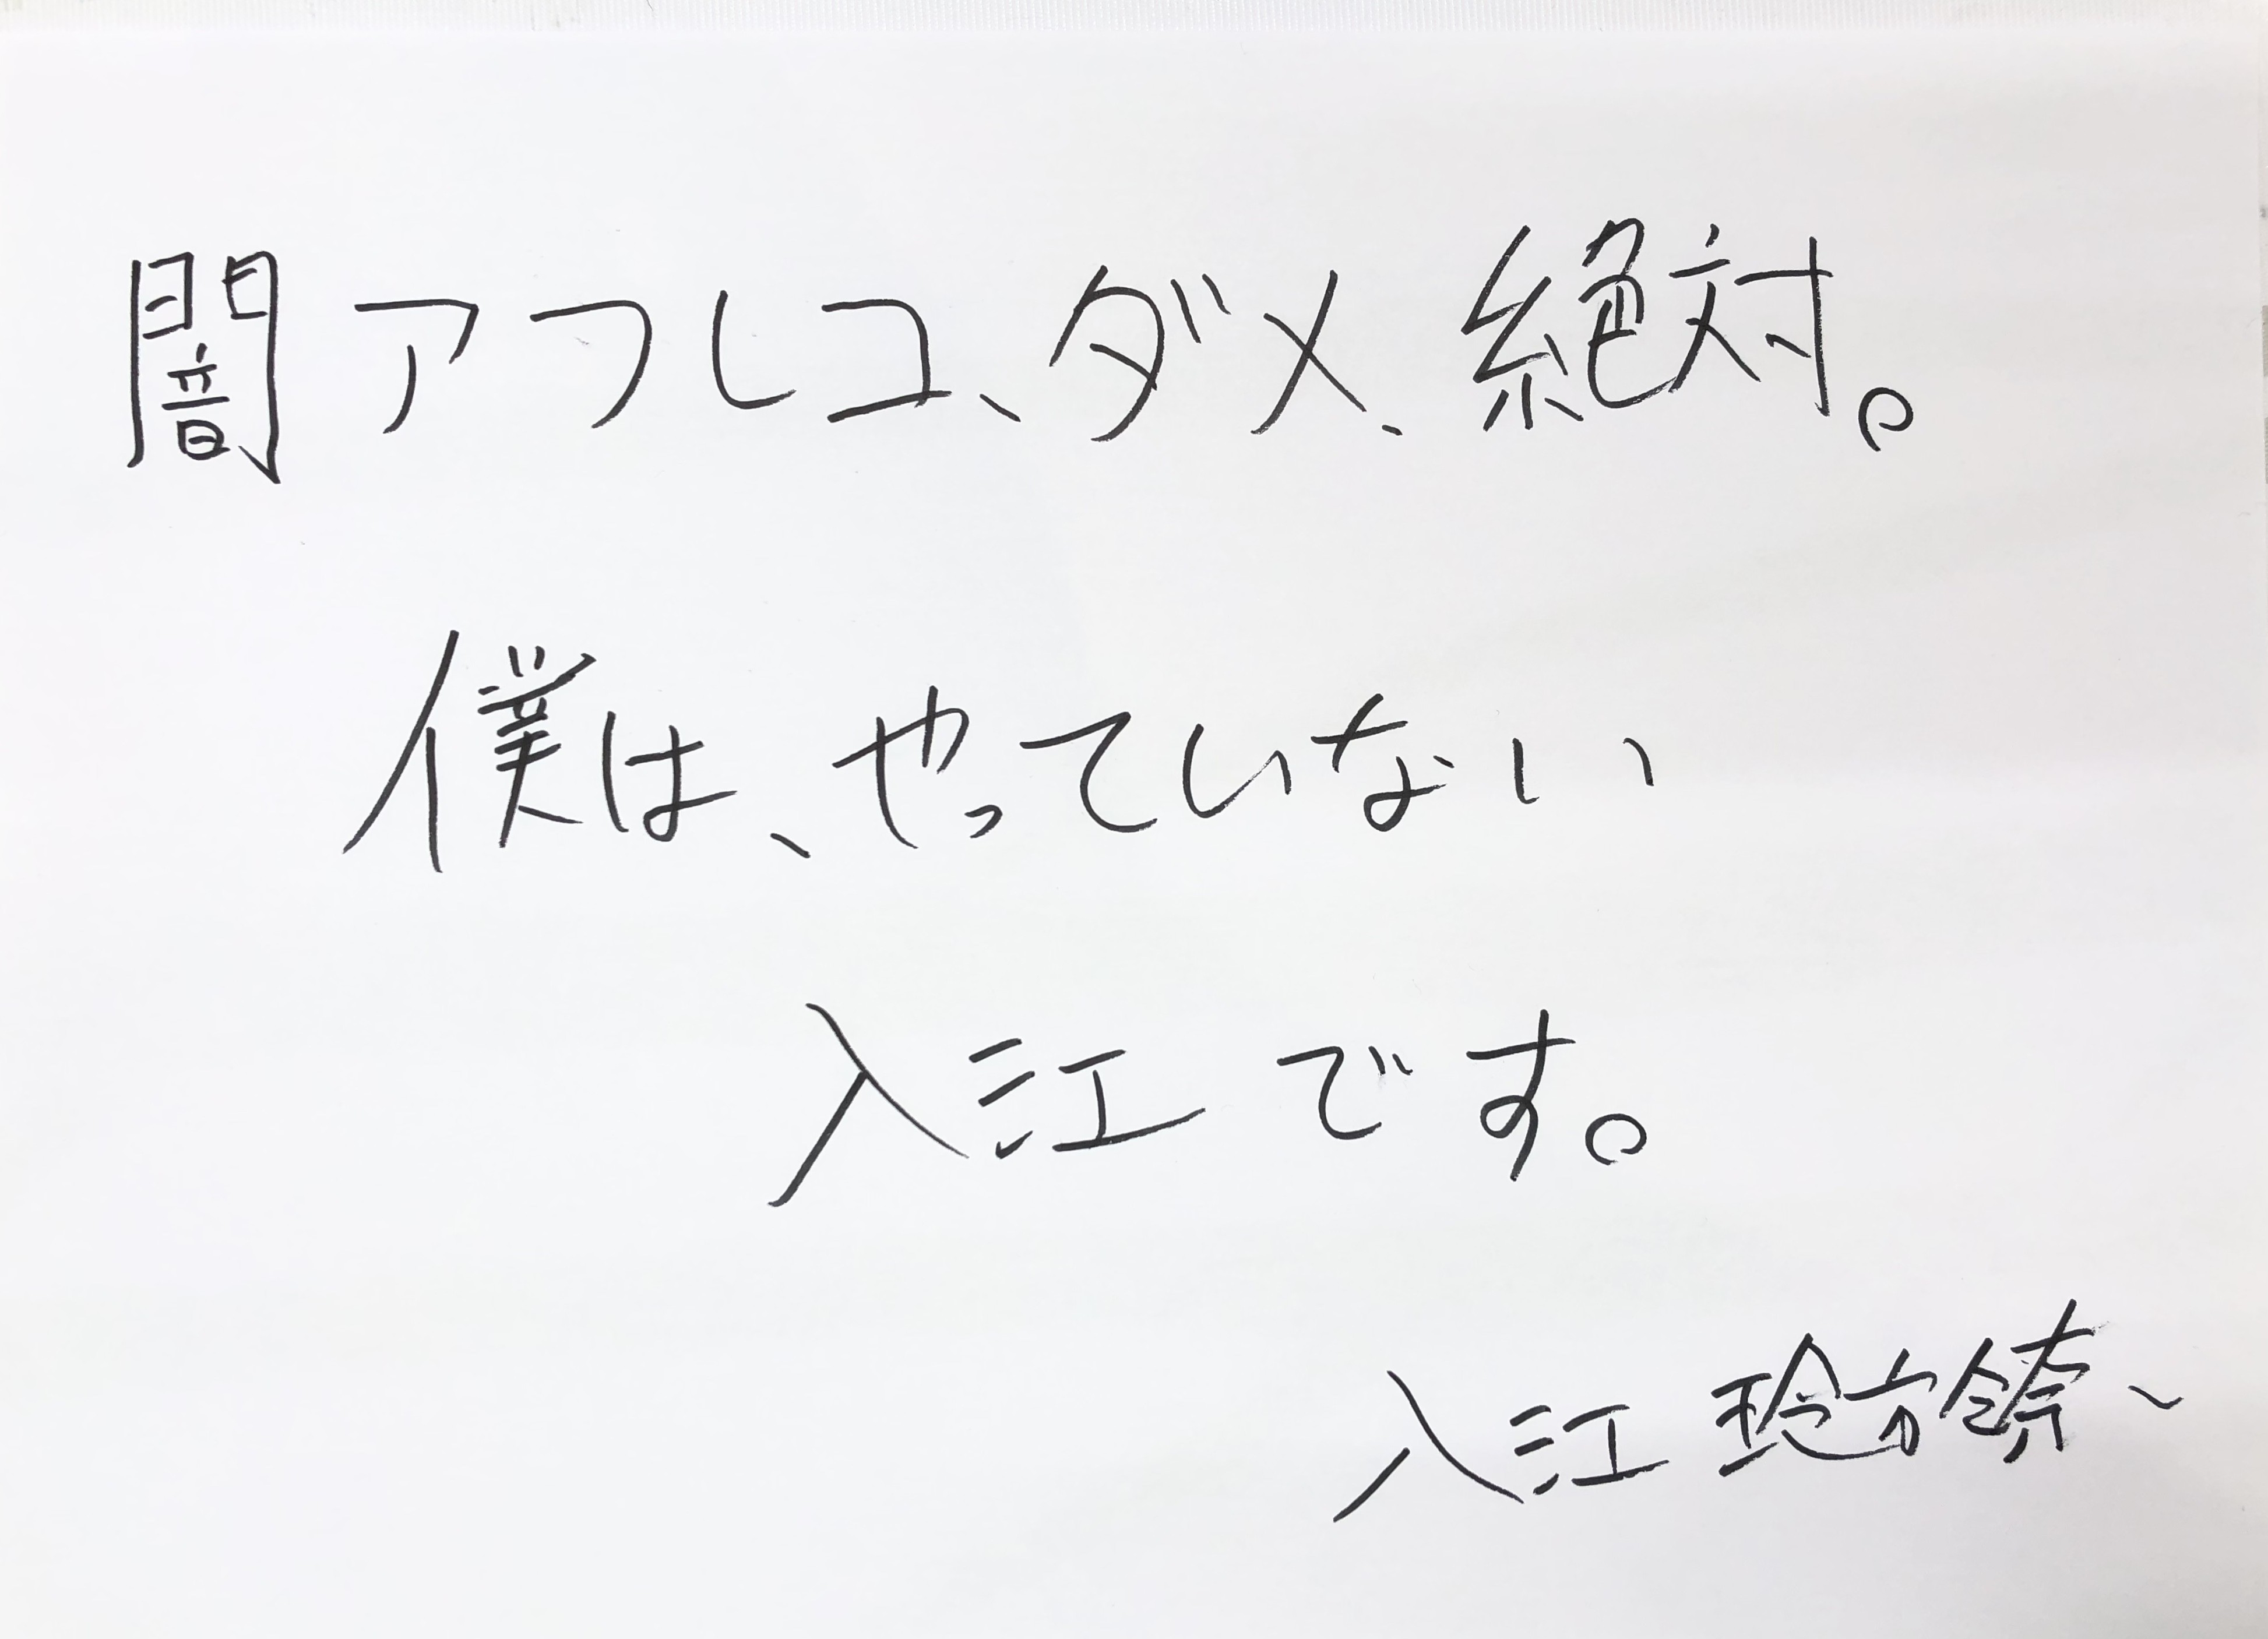 闇アフレコ、ダメ、絶対。
僕は、やっていない
入江です。
入江玲於奈